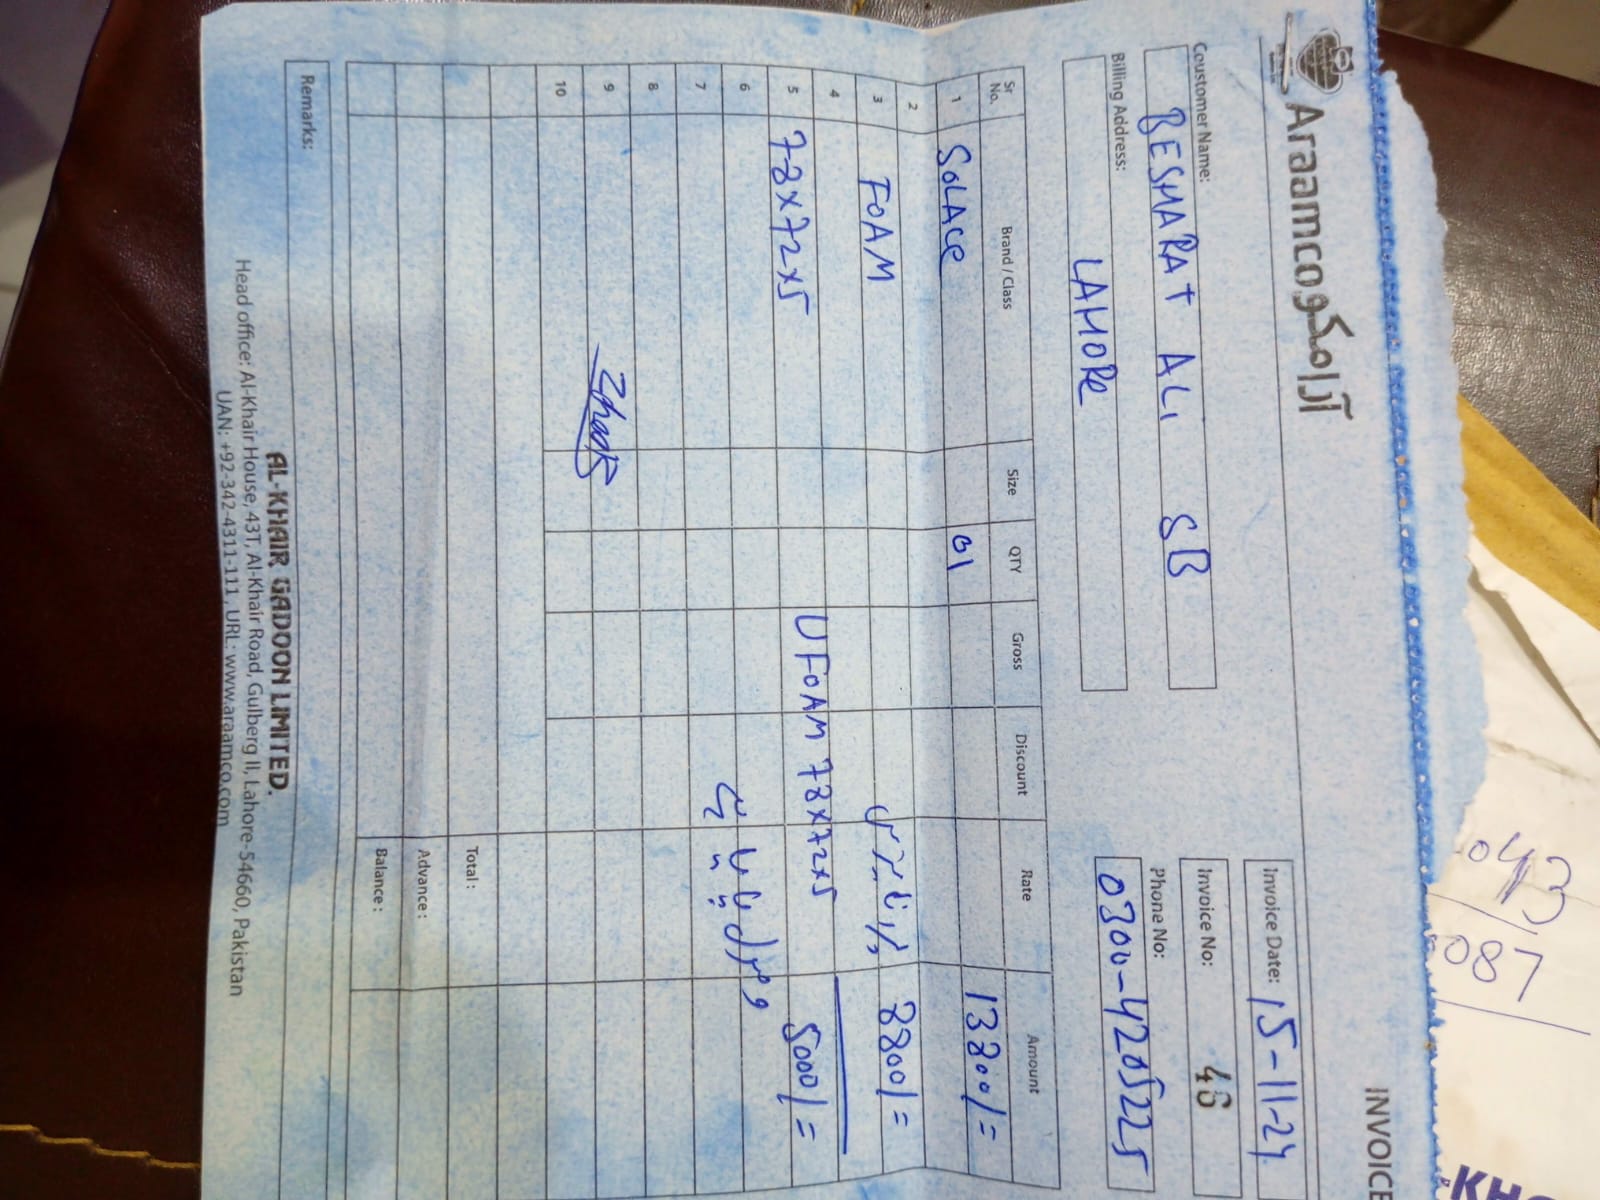 Araamco آرامکو
INVOICE
Coustomer Name: BESHARAT ALI SB
Billing Address: LAHORE
Invoice Date: 15-11-24
Invoice No: 46
Phone No: 0300-4205225
Sr No. Brand / Class Size QTY Gross Discount Rate Amount
1 SOLACE 01 13800/=
2
3 FOAM 8800/=
4 UFOAM 78x72x5
5 78x72x5 5000/=
6
7
8
9
10
Total :
Advance :
Balance :
Remarks:
AL-KHAIR GADOON LIMITED.
Head office: Al-Khair House, 43T, Al-Khair Road, Gulberg II, Lahore-54660, Pakistan
UAN: +92-342-4311-111, URL: www.araamco.com
043
087
KH